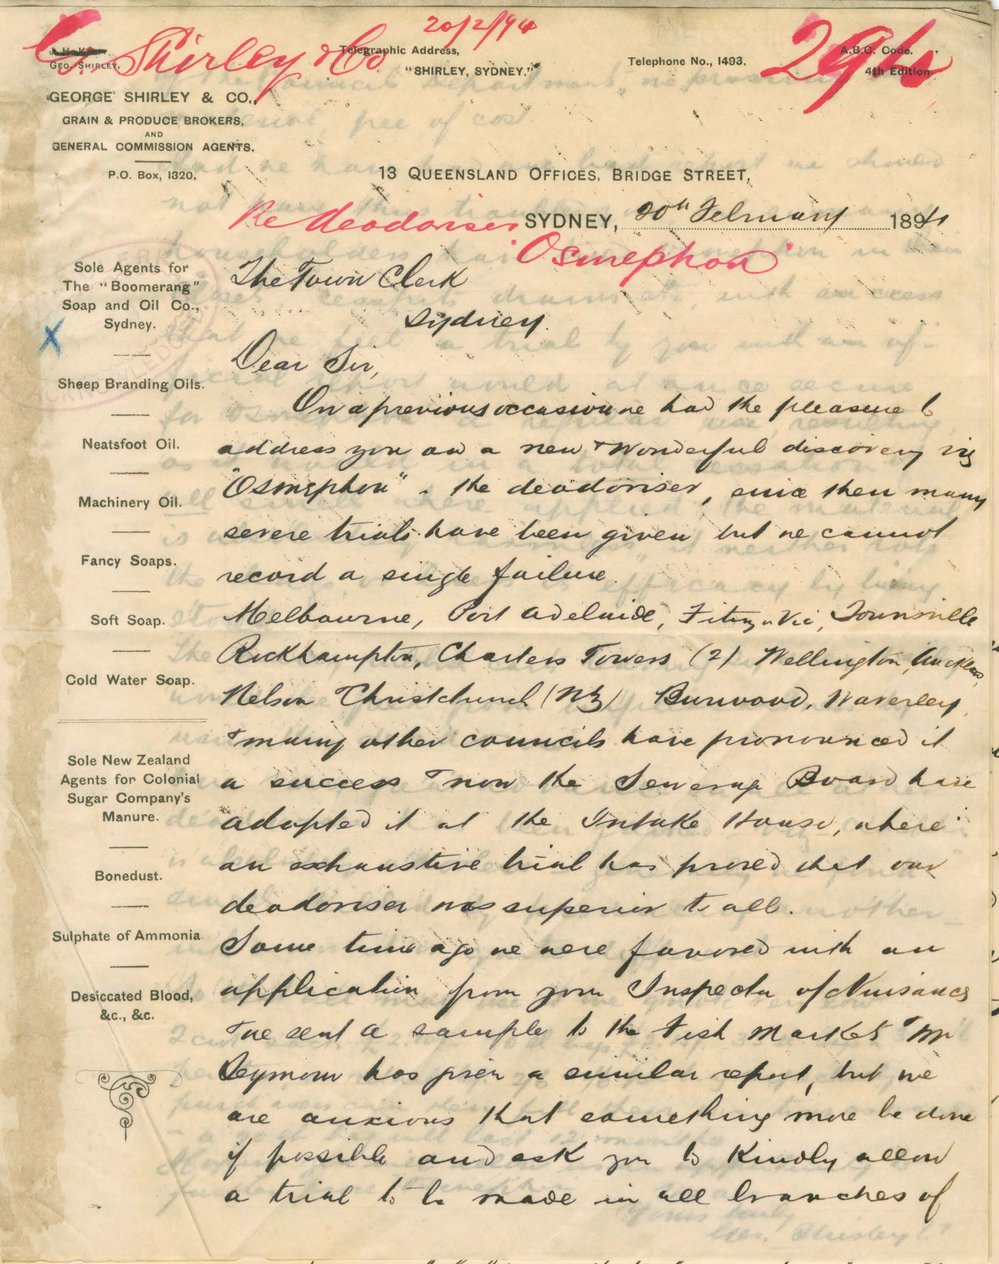 20/2/94
G. Shirley & Co
294
J. H. K
Geo. Shirley.
Telegraphic Address,
"SHIRLEY, SYDNEY."
Telephone No., 1493.
A.B.C. Code.
4th Edition
GEORGE SHIRLEY & CO.,
GRAIN & PRODUCE BROKERS,
AND
GENERAL COMMISSION AGENTS.
P.O. Box, 1320.
13 Queensland Offices, Bridge Street,
Re deodoriser
SYDNEY, 20th February 1894
"Osmephon"
Sole Agents for
The "Boomerang"
Soap and Oil Co.,
Sydney.
Sheep Branding Oils.
Neatsfoot Oil.
Machinery Oil.
Fancy Soaps.
Soft Soap.
Cold Water Soap.
Sole New Zealand
Agents for Colonial
Sugar Company's
Manure.
Bonedust.
Sulphate of Ammonia
Desiccated Blood,
&c., &c.
The Town Clerk
Sydney.
Dear Sir,
On a previous occasion we had the pleasure to
address you on a new & wonderful discovery viz
"Osmephon" - the deodoriser, since then many
severe trials have been given but we cannot
record a single failure
Melbourne, Port Adelaide, Fitzroy Vic, Townsville
Rockhampton, Charters Towers (2) Wellington, Auckland,
Nelson Christchurch (NZ) Burwood, Waverley,
& many other councils have pronounced it
a success & now the Sewerage Board have
adopted it at the Intake House, where
an exhaustive trial has proved that our
deodoriser was superior to all.
Some time ago we were favored with an
application from your Inspector of Nuisances
& we sent a sample to the Fish Market & Mr
Seymour has given a similar report, but we
are anxious that something more be done
if possible and ask you to kindly allow
a trial to be made in all branches of